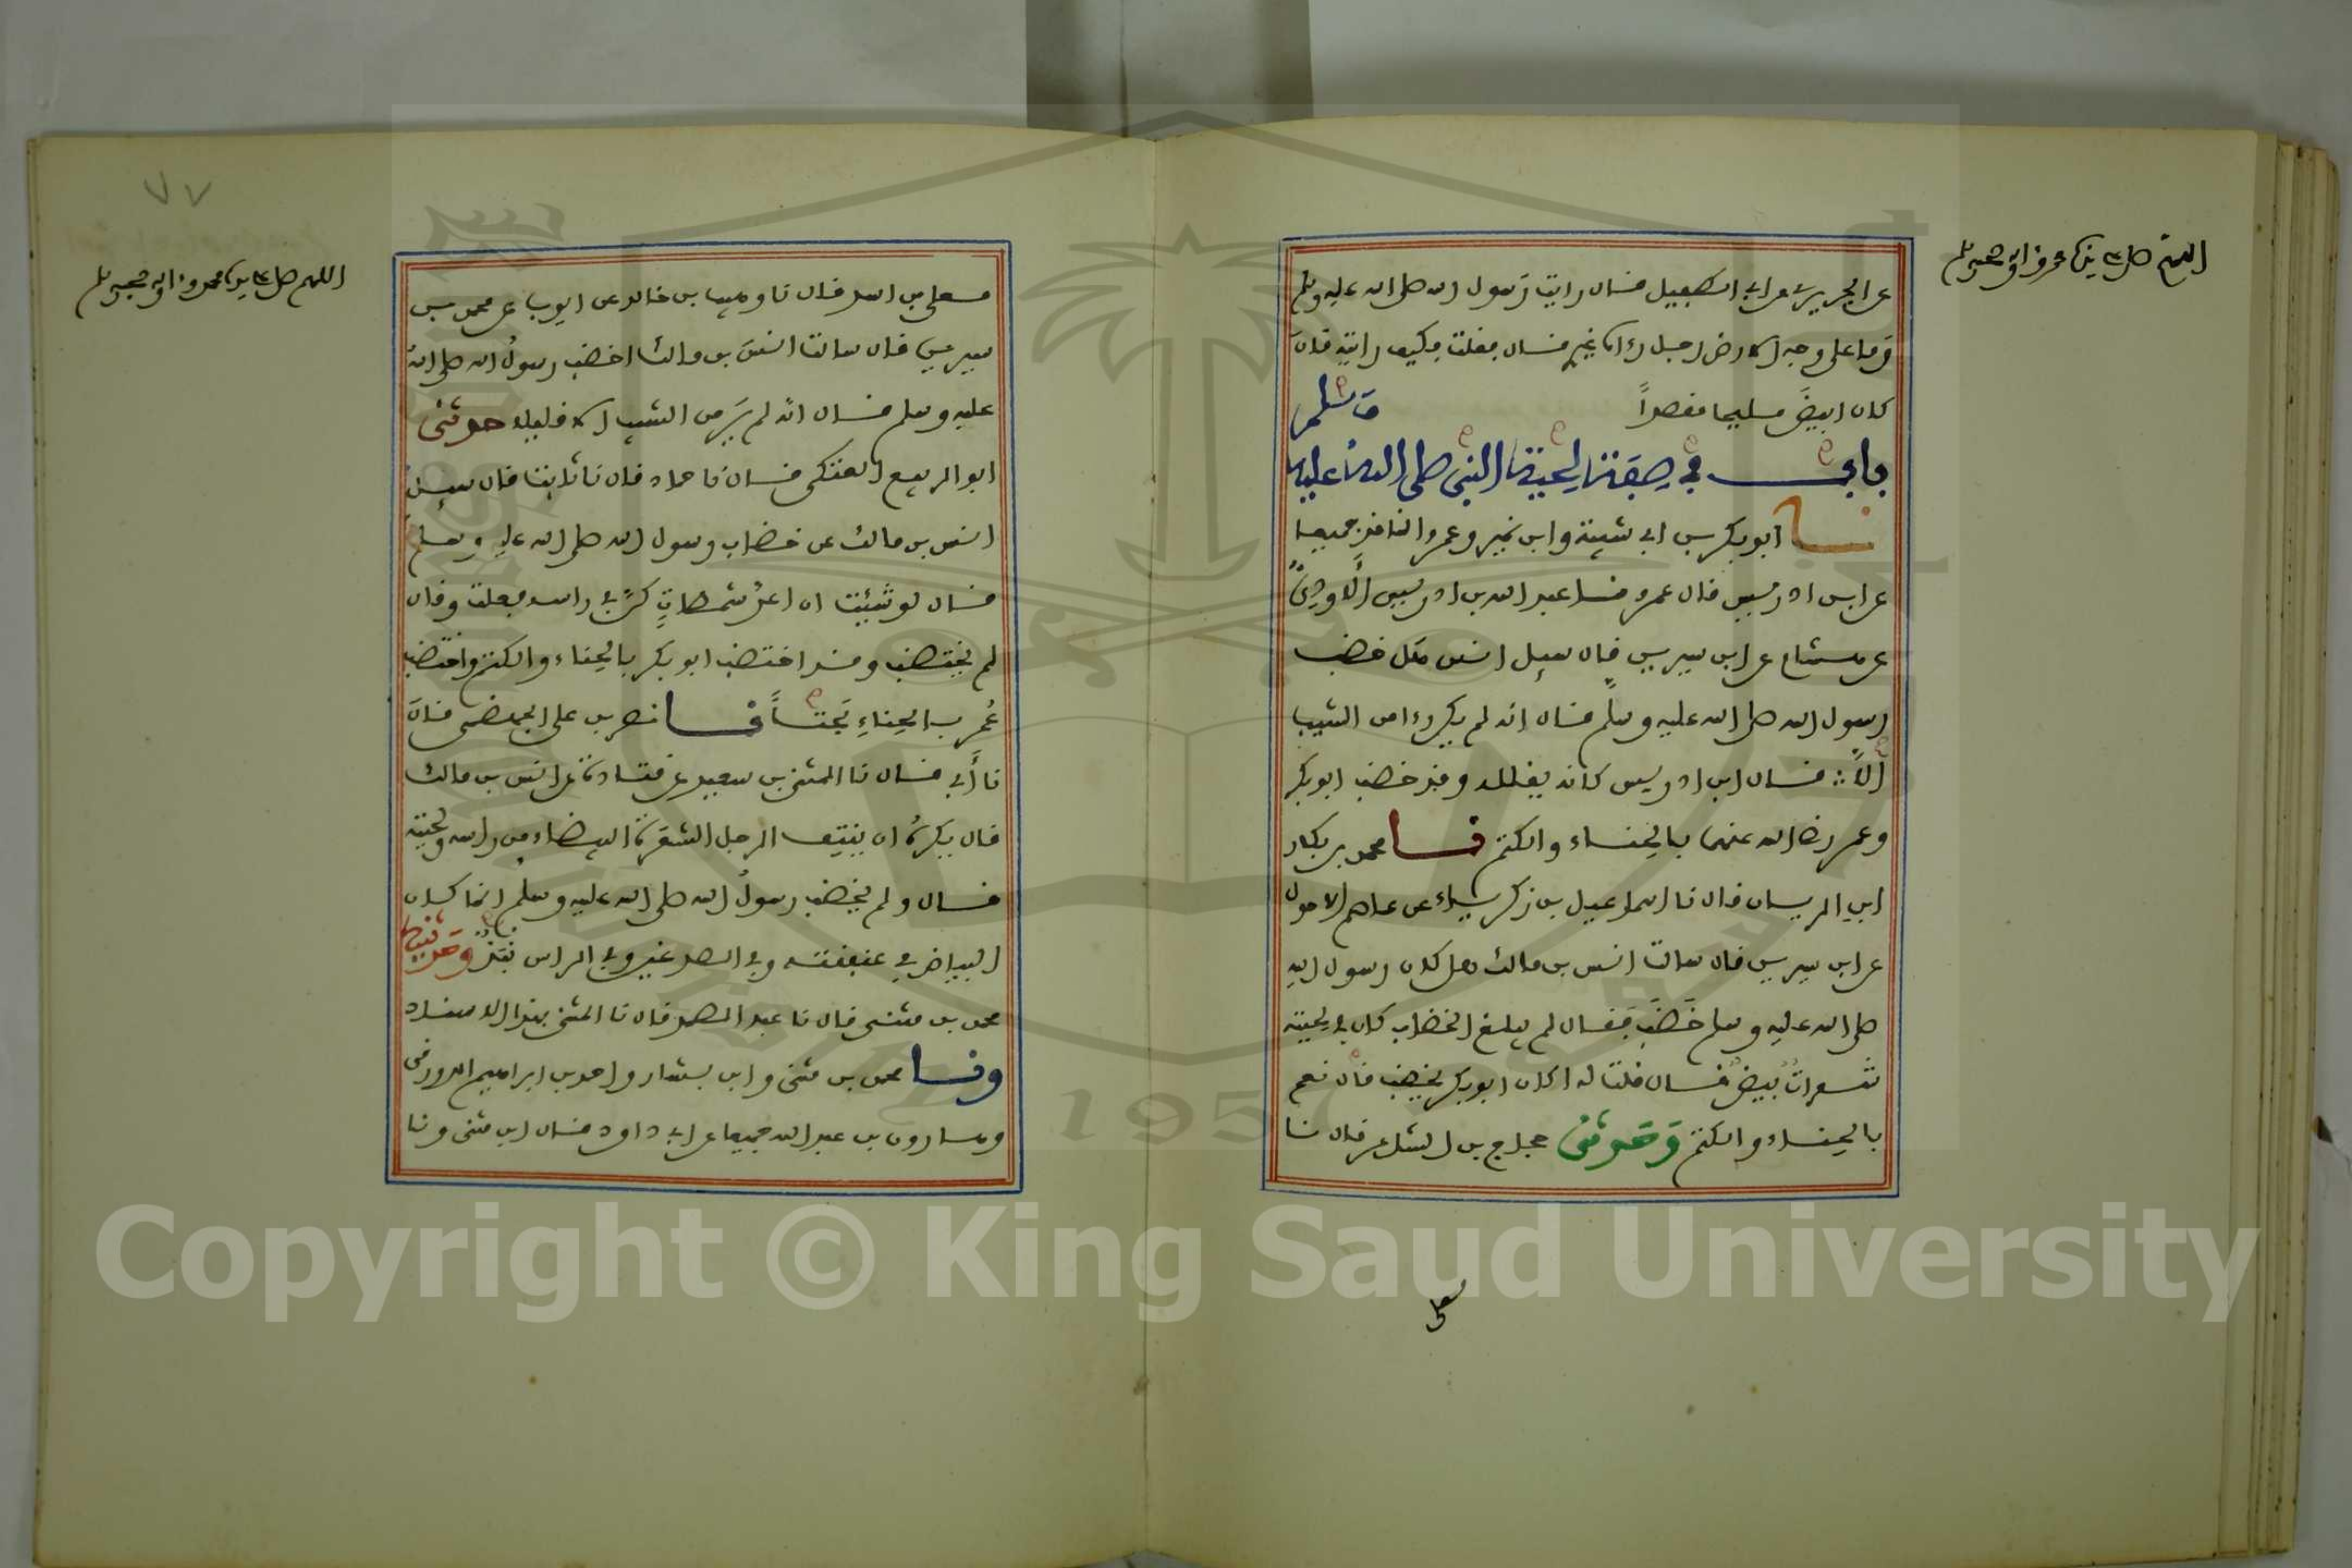 اللهم صل على سيدنا محمد وءاله وصحبه وسلم
عن الجريري عن ابي الطفيل قال رايت رسول الله صلى الله عليه وسلم
وما على وجه الارض رجل رءاه غيري قال فقلت فكيف رايته قال
كان ابيض مليحا مقصدا
باب في صفة لحية النبي صلى الله عليه وسلم
نا ابو بكر بن ابي شيبة وابن نمير وعمرو الناقد جميعا
عن ابن ادريس قال عمرو نا عبد الله بن ادريس الاودي
عن هشام عن ابن سيرين قال سيل انس هل خضب
رسول الله صلى الله عليه وسلم قال انه لم يكن رءا من الشيب
الا قال ابن ادريس كانه يقلله وقد خضب ابو بكر
وعمر رضي الله عنهما بالحناء والكتم نا محمد بن بكار
ابن الريان قال نا اسماعيل بن زكرياء عن عاصم الاحول
عن ابن سيرين قال سالت انس بن مالك هل كان رسول الله
صلى الله عليه وسلم خضب فقال لم يبلغ الخضاب كان في لحيته
شعرات بيض قال قلت له اكان ابو بكر يخضب قال نعم
بالحناء والكتم وحدثني حجاج بن الشاعر قال نا
معلى
٧٧
اللهم صل على سيدنا محمد وءاله وصحبه وسلم
معلى بن اسد قال نا وهيب بن خالد عن ايوب عن محمد بن
سيرين قال سالت انس بن مالك اخضب رسول الله صلى الله
عليه وسلم قال انه لم ير من الشيب الا قليلا حدثني
ابو الربيع العتكي قال نا حماد قال نا ثابت قال سيل
انس بن مالك عن خضاب رسول الله صلى الله عليه وسلم
قال لو شئت ان اعد شمطات كن في راسه فعلت وقال
لم يختضب وقد اختضب ابو بكر بالحناء والكتم واختضب
عمر بالحناء بحتا نا نصر بن علي الجهضمي قال
نا أبي قال نا المثنى بن سعيد عن قتادة عن انس بن مالك
قال يكره ان ينتف الرجل الشعرة البيضاء من راسه ولحيته
قال ولم يخضب رسول الله صلى الله عليه وسلم انما كان
البياض في عنفقته وفي الصدغين وفي الراس نبذ وحدثنيه
محمد بن مثنى قال نا عبد الصمد قال نا المثنى بهذا الاسناد
ونا محمد بن مثنى وابن بشار واحمد بن ابراهيم الدورقي
وهارون بن عبد الله جميعا عن ابي داود قال ابن مثنى ونا
Copyright © King Saud University
1957